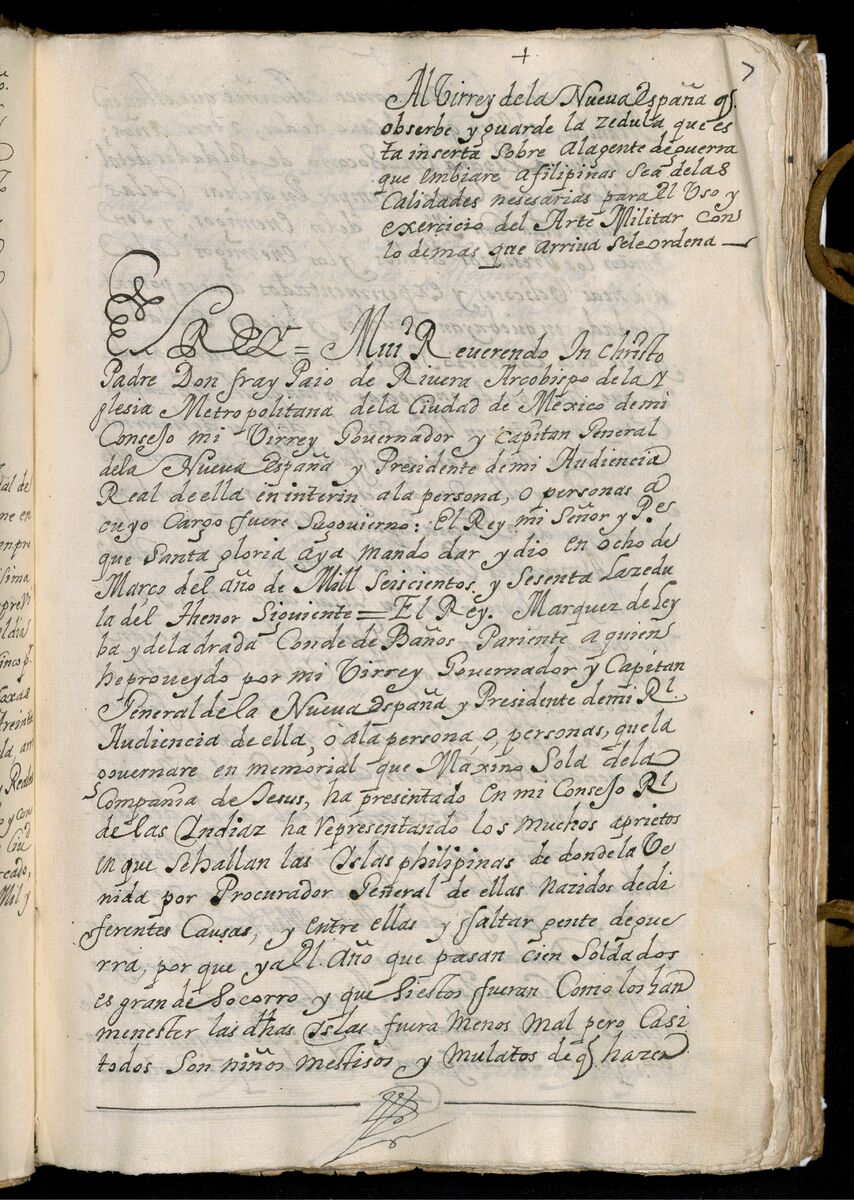 +
7
Al Virrey dela Nueva España q̃.
obserbe y guarde la zedula que es
ta inserta sobre alagente deguerra
que embiare afilipinas sea delas
Calidades nesesarias para el Uso y
exercicio del Arte Militar con
lo demas que arriva seleordena —
El Rey = Mui Reverendo In Christo
Padre Don fray Paio de Rivera Arcobispo dela Y
glesia Metropolitana dela Ciudad de Mexico demi
Consejo mi Virrey Governador y Capitan General
dela Nueva España y Presidente demi Audiencia
Real de ella en interin ala persona, o personas a
cuyo Cargo fuere Sugovierno: El Rey mi Señor y Pe
que Santa gloria aya mando dar y dio en ocho de
Março del año de Mill Seiscientos y Sesenta Lazedu
la del thenor Siguiente = El Rey. Marquez de Ley
ba y deladrada Conde de Baños Pariente aquien
heproveydo por mi Virrey Governador y Capitan
General de la Nueva España y Presidente demi Rl.
Audiencia de ella, o ala persona, o, personas, que la
governare en memorial que Maximo Sola dela
Compañia de Jesus, ha presentado en mi Consejo Rl
de las Indiaz ha Representando los muchos aprietos
en que Sehallan las Islas philipinas de donde la Ve
nida por Procurador General de ellas Nazidos dedi
ferentes Causas, y entre ellas y ffaltar gente degue
rra, por que ya el año que pasan cien Soldados
es grande Socorro y que Siestos fueran Como los han
menester las dhas Islas fuera menos mal pero Casi
todos Son niños mestisos y mulatos de q̃ hazen